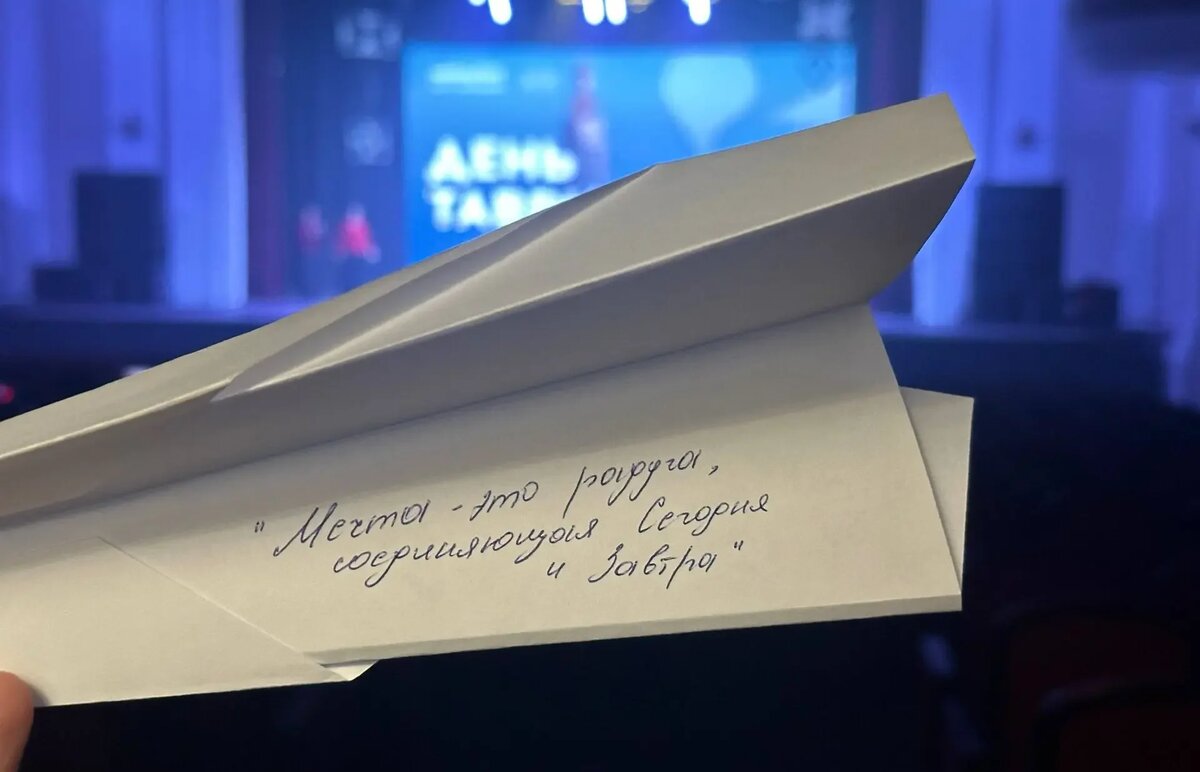 ДЕНЬ
"Мечта - это радуга,
соединяющая Сегодня
и Завтра"